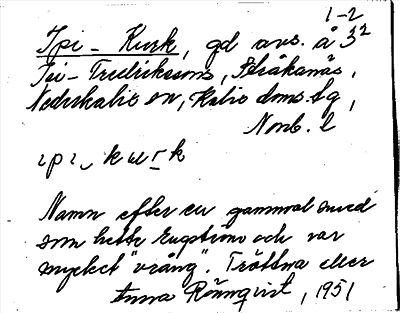 1-2
Ipi-Kurk, gd avs. å 3²
Isi-Fredrikssons, Stråkanäs,
Nederkalix sn, Kalix doms.tg,
Norrb. l
ıpı ku r k
Namn efter en gammal smed
som hette Engström och var
mycket "vrång". Tröttna eller
Anna Rönnqvist, 1951